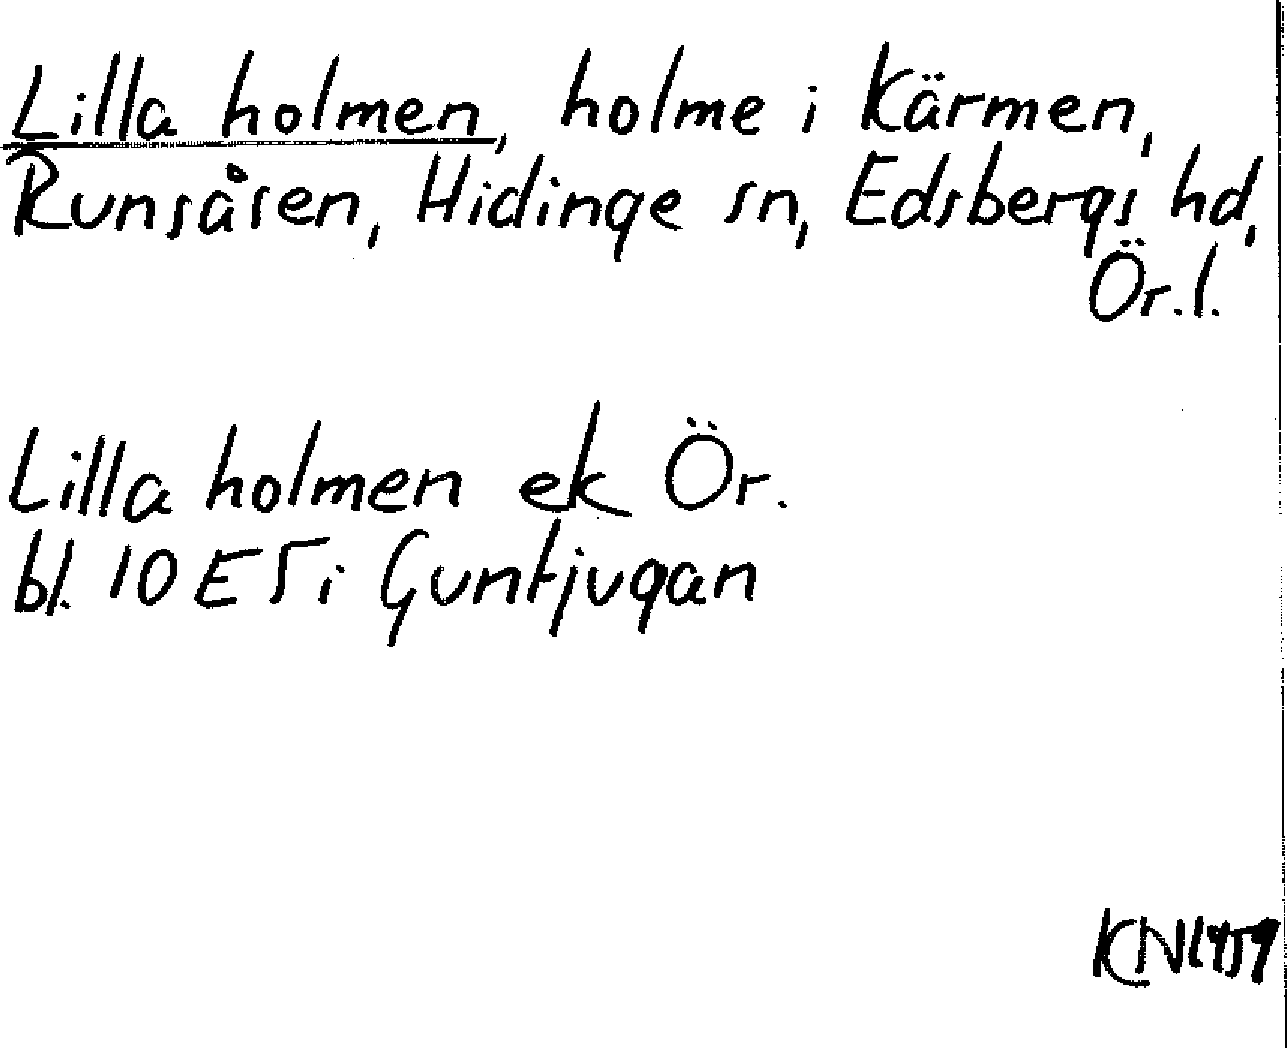 Lilla holmen, holme i Kärmen,
Runsåsen, Hidinge sn, Edsbergs hd,
Ör.l.
Lilla holmen ek Ör.
bl. 10 E5 i Guntjugan
KN 1959